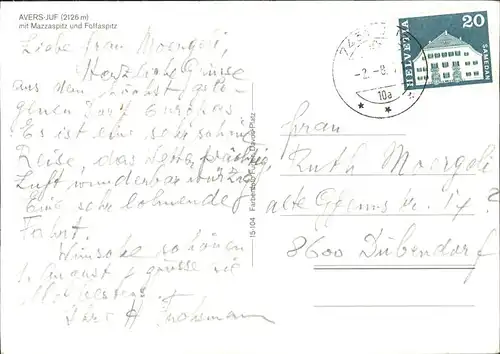 AVERS-JUF (2126 m)
mit Mazzaspitz und Follaspitz
Liebe Frau Moergeli,
Herzliche Grüsse
aus dem höchst gele-
genen Dorf Europas
Es ist eine sehr schöne
Reise, das Wetter prächtig,
Luft wunderbar würzig
Eine sehr lohnende
Fahrt.
Wünsche schönen
1. August & grüsse Sie
Ihre H.
15-104 Farbenphoto Davos-Platz
HELVETIA 20
SAMEDAN
-2.-8.
10a
Frau
Ruth Moergeli
alte
8600 Dübendorf